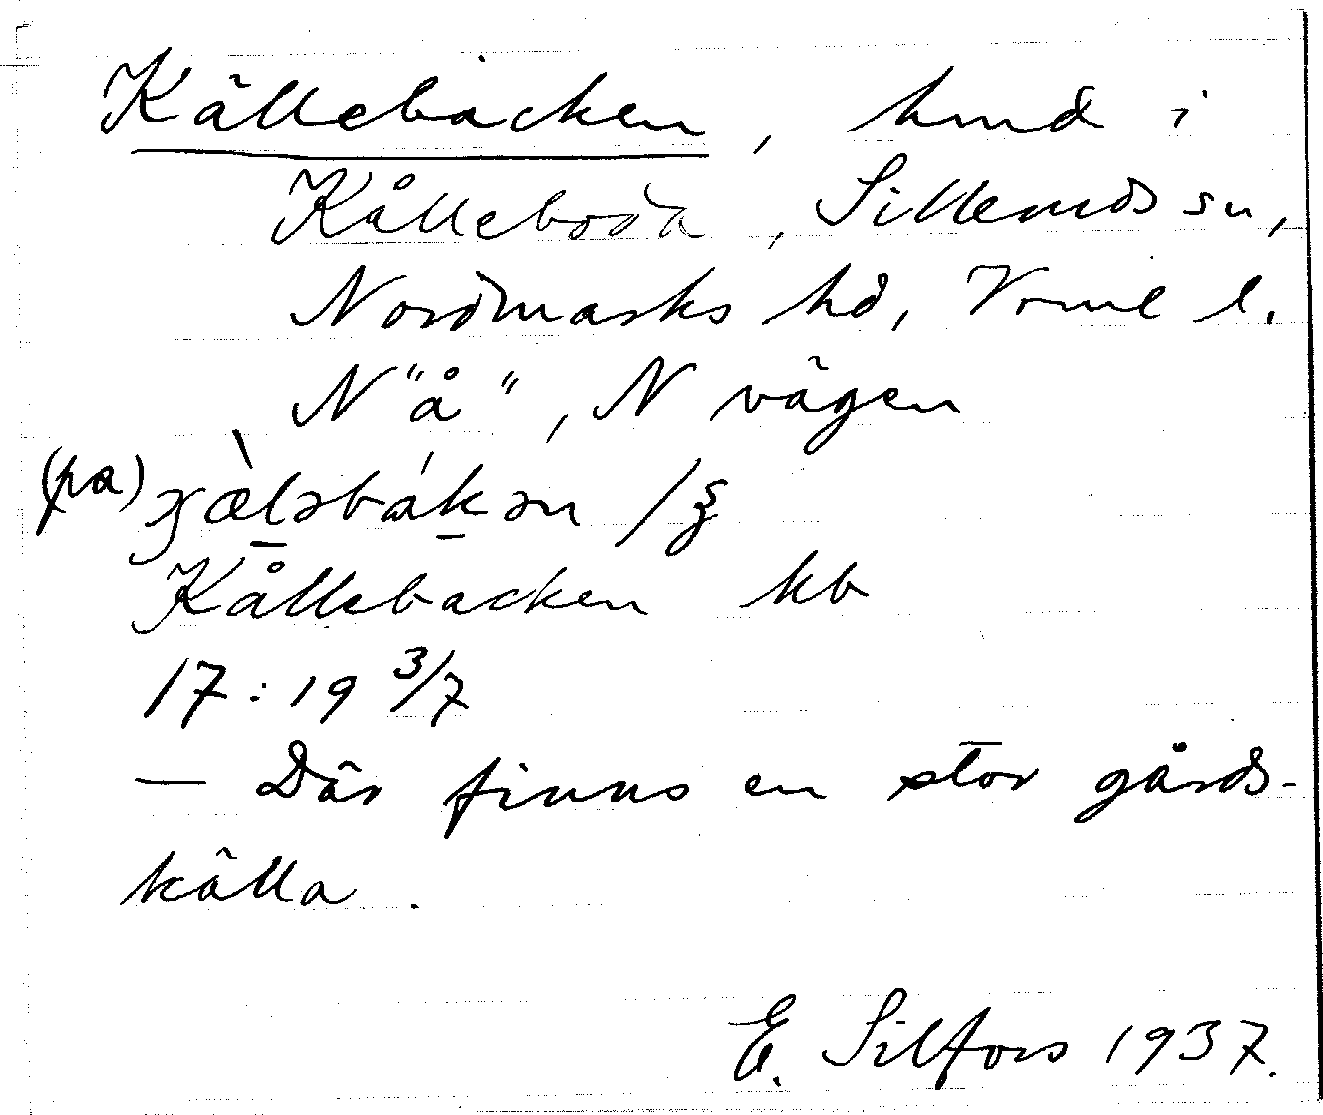 Källebacken, hmd i
Kålleboda, Silleruds sn,
Nordmarks hd, Vrml l.
N "å", N vägen
(pa)
Kållebacken kb
17:19 3/7
— Där finns en stor gårds-
källa.
E. Silfors 1937.